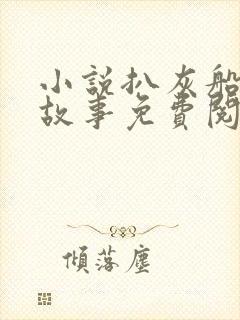 小說扒灰船
故事免費閱
傾落塵